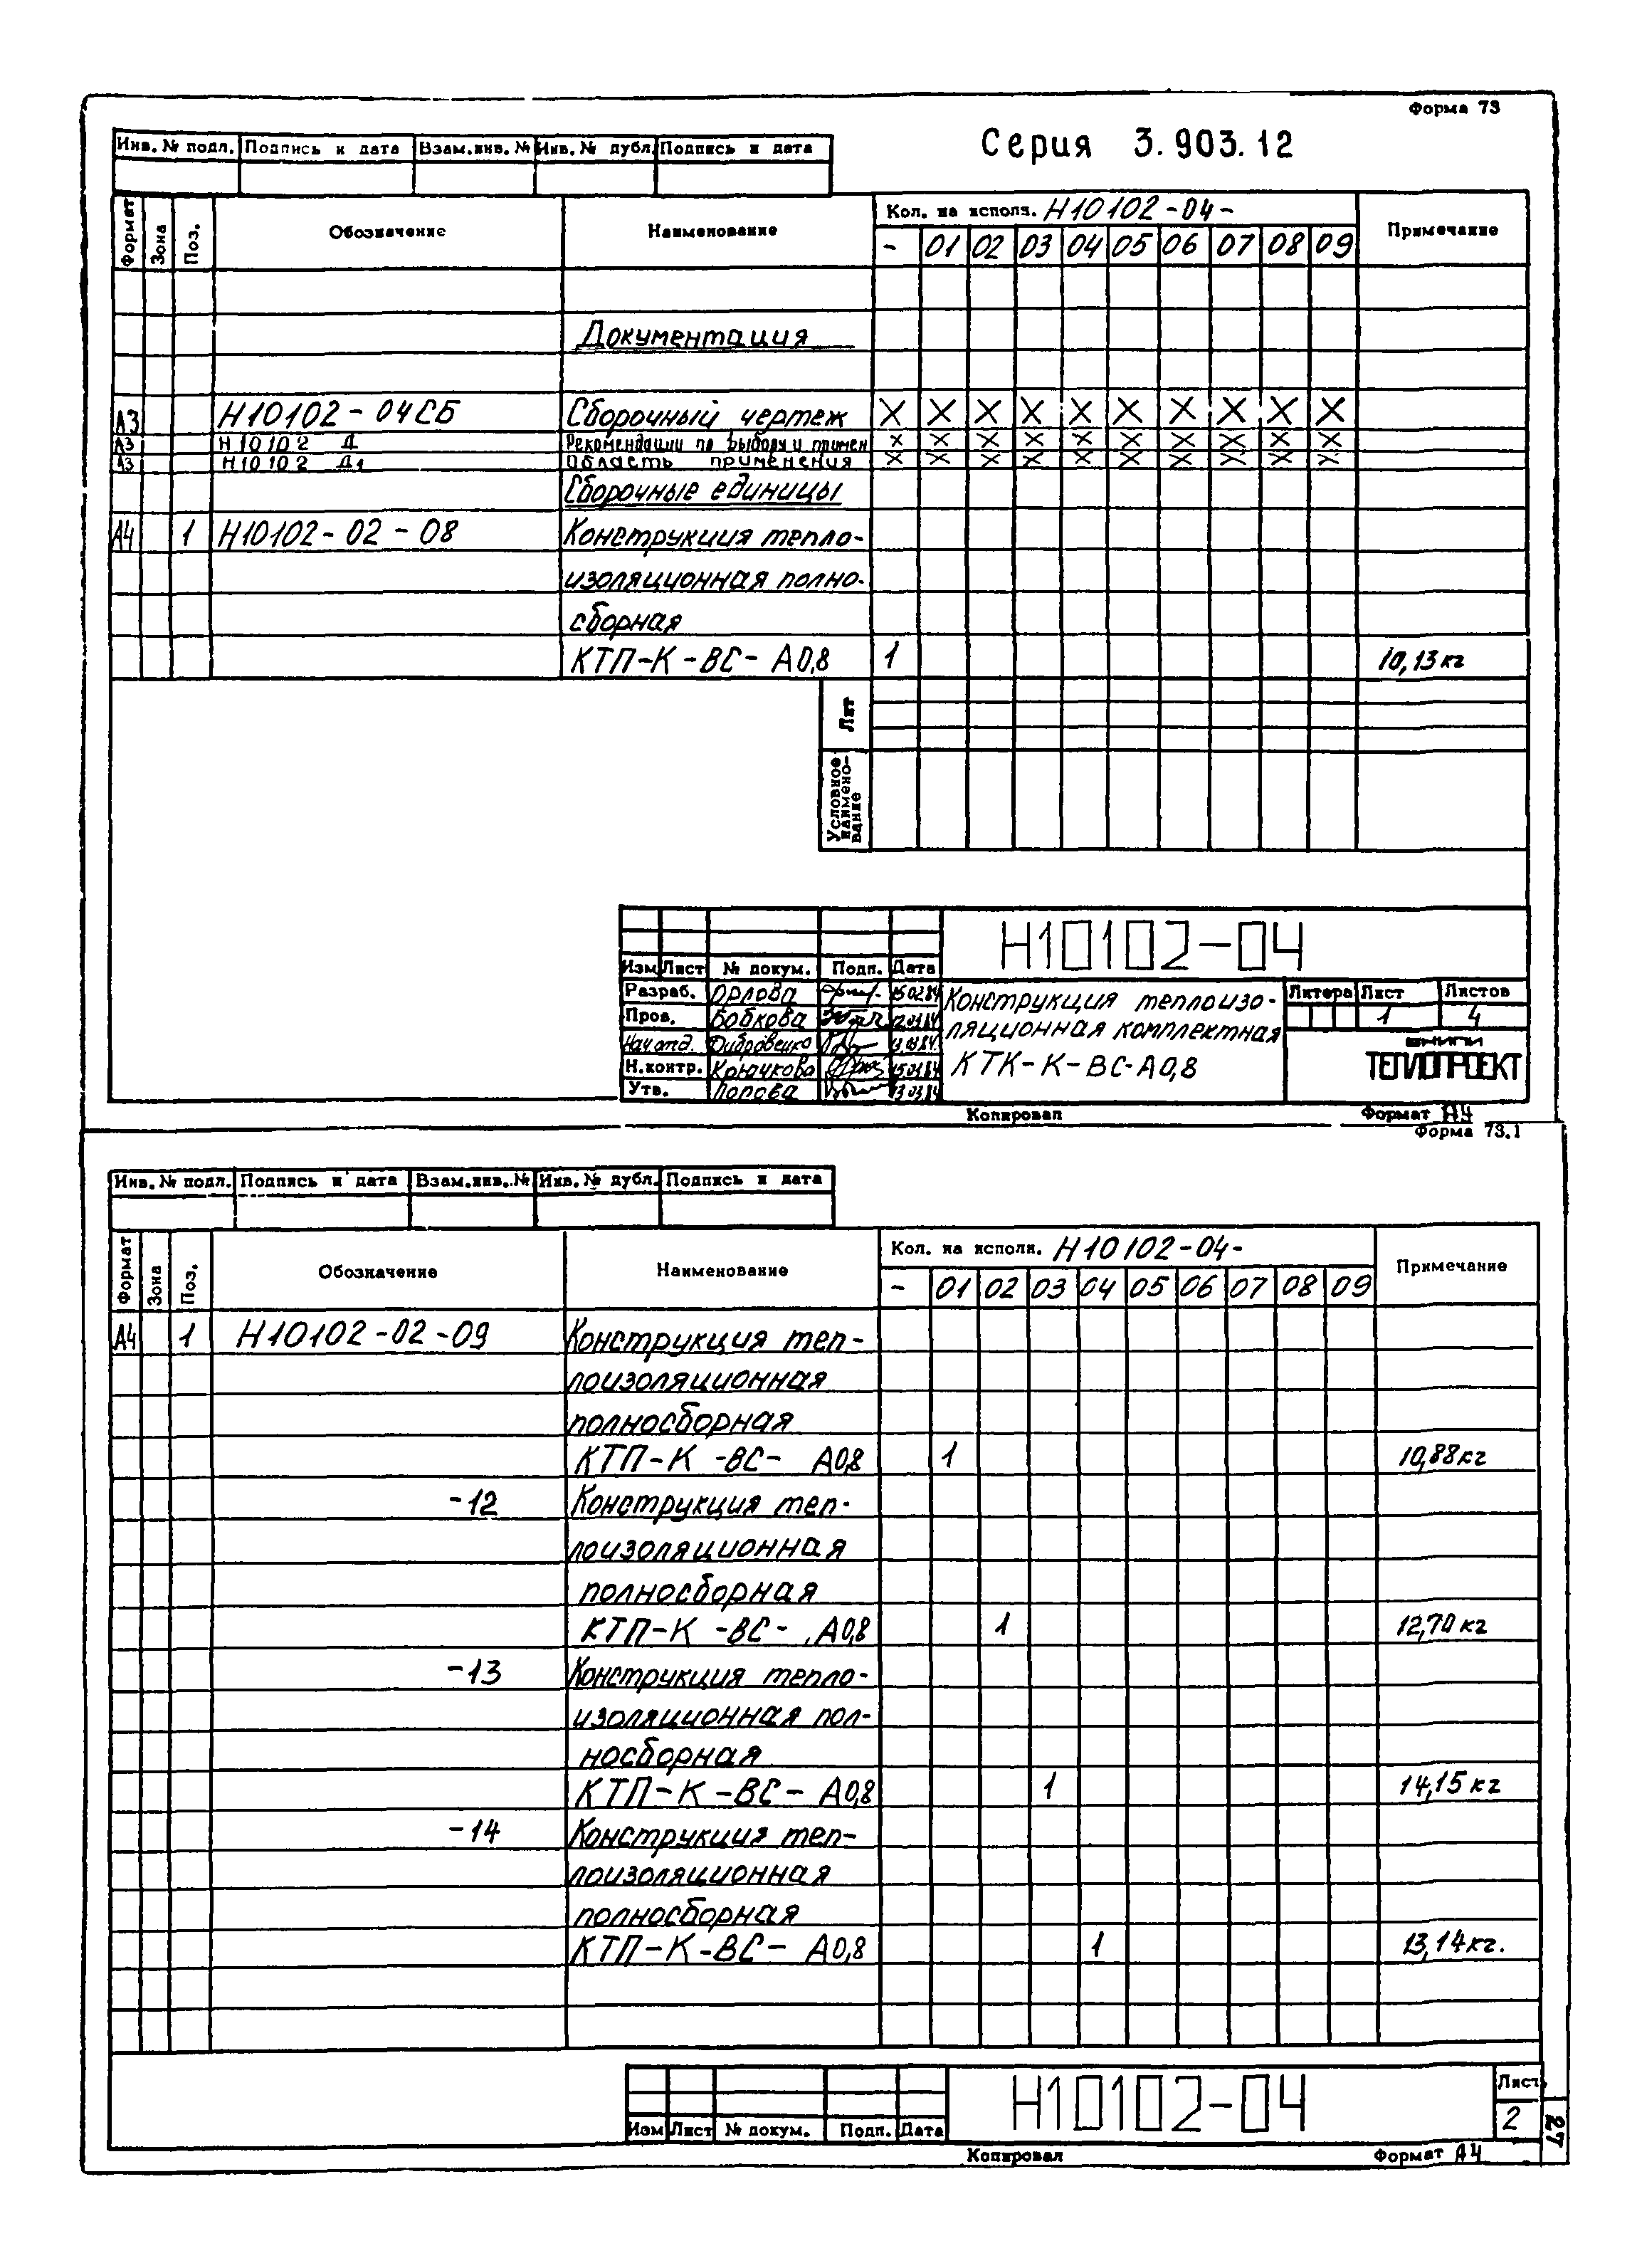 Форма 73
Серия 3.903.12
Инв. № подл. Подпись и дата Взам.инв. № Инв. № дубл. Подпись и дата
Формат Зона Поз. Обозначение Наименование Кол. на исполн. Н10102-04- Примечание
- 01 02 03 04 05 06 07 08 09
Документация
А3 Н10102-04СБ Сборочный чертеж X X X X X X X X X X
А3 Н10102 Д Рекомендации по выбору и примен X X X X X X X X X X
А3 Н10102 Д1 Область применения X X X X X X X X X X
Сборочные единицы
А4 1 Н10102-02-08 Конструкция тепло-
изоляционная полно-
сборная
КТП-К-ВС-А0,8 1 10,13кг
Лит
Условное
наимено-
вание
Н10102-04
Изм Лист № докум. Подп. Дата
Разраб. Орлова Конструкция теплоизо-
Пров. Бобкова ляционная комплектная
Нач.отд.
Н.контр. Крючкова КТК-К-ВС-А0,8
Утв. Попова
Литера Лист Листов
1 4
ВНИПИ
ТЕПЛОПРОЕКТ
Копировал Формат А4
Форма 73.1
Инв. № подл. Подпись и дата Взам.инв. № Инв. № дубл. Подпись и дата
Формат Зона Поз. Обозначение Наименование Кол. на исполн. Н10102-04- Примечание
- 01 02 03 04 05 06 07 08 09
А4 1 Н10102-02-09 Конструкция теп-
лоизоляционная
полносборная
КТП-К-ВС- А0,8 1 10,88кг
-12 Конструкция теп-
лоизоляционная
полносборная
КТП-К-ВС- А0,8 1 12,70кг
-13 Конструкция тепло-
изоляционная пол-
носборная
КТП-К-ВС- А0,8 1 14,15кг
-14 Конструкция теп-
лоизоляционная
полносборная
КТП-К-ВС- А0,8 1 13,14кг.
Н10102-04
Лист
2
Изм Лист № докум. Подп. Дата
27
Копировал Формат А4